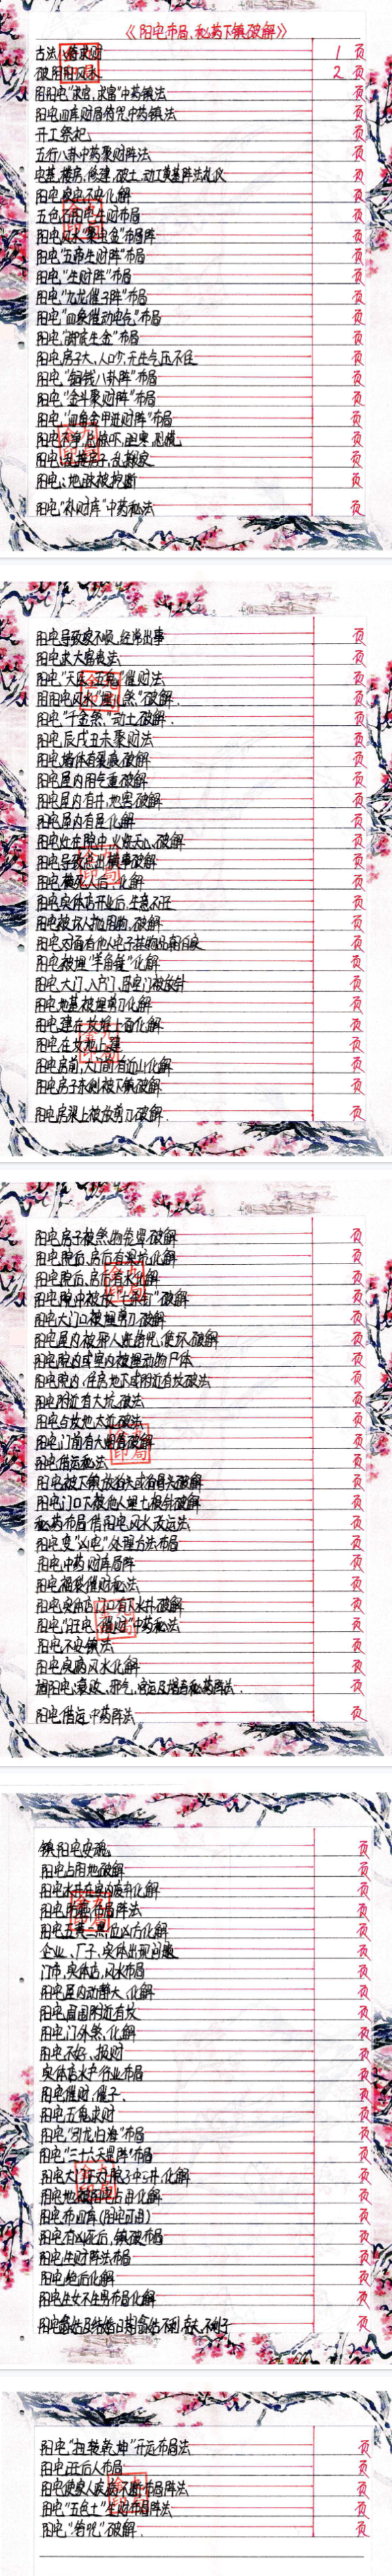 《阳宅布局、秘药下镇破解》
古法 求财 1 页
破阴阳风水 2 页
阴阳宅"求官、求富"中药镇法 页
阳宅四库财局符咒中药镇法 页
开工祭祀 页
五行八卦中药聚财阵法 页
宅基、楼房、修建、破土、动工奠基阵法礼仪 页
阳宅家宅不安化解 页
五色石阳宅生财布局 页
阳宅风水"聚宝盆"布局阵 页
阳宅"五帝生财阵"布局 页
阳宅"生财阵"布局 页
阳宅"九龙催子阵"布局 页
阳宅"四象催动宅气"布局 页
阳宅" 生金"布局 页
阳宅房子大、人口少、无生气压不住 页
阳宅"铜钱八卦阵"布局 页
阳宅"金斗聚财阵"布局 页
阳宅"四角金甲进财阵"布局 页
阳宅不净 页
阳宅 页
阳宅:地脉被挖断 页
阳宅"补财库"中药秘法 页
阳宅导致家不顺,经常出事 页
阳宅求大富贵法 页
阳宅"天医、五鬼"催财法 页
阴阳宅风水" 煞"破解. 页
阳宅"千金煞"动土破解. 页
阳宅辰戌丑未聚财法 页
阳宅墙体有裂痕破解 页
阳宅屋内阴气重破解 页
阳宅屋内有井,地窖破解 页
阳宅屋内有 化解 页
阳宅灶在院中,火烧天心破解 页
阳宅导致总出横事破解 页
阳宅横死人后,化解 页
阳宅实体店开业后,生意不旺 页
阳宅被坏人抛阴物,破解 页
阳宅 页
阳宅被埋"羊角锤"化解 页
阳宅大门、入户门、卧室门被放针 页
阳宅地基被埋剪刀化解 页
阳宅建在坟坑上面化解 页
阳宅在坟地上建 页
阳宅房前,大门前有近山化解 页
阳宅房子东侧被下镇破解 页
阳宅房梁上被放剪刀破解. 页
阳宅房子被煞 破解 页
阳宅院后、房后有深沟化解 页
阳宅院后、房后有水化解 页
阳宅院中被放"七 钉"破解 页
阳宅大门口被埋剪刀破解 页
阳宅屋内被 人 ,使坏破解 页
阳宅院内或室内被埋动物尸体 页
阳宅院内、住房地下或附近有坟破法 页
阳宅附近有大坑破法 页
阳宅占坟地太近破法 页
阳宅门前有大 破解 页
阳宅借运秘法 页
阳宅被下镇放 破解 页
阳宅门口下被他人埋土被针破解 页
秘药布局借阳宅风水改运法 页
阳宅变"凶宅"处理方法布局 页
阳宅中药财库局阵 页
阳宅福袋催财秘法 页
阳宅实体店门口有下水井破解 页
阳宅"旺宅、催财"中药秘法 页
阳宅不安镇法 页
阳宅疾病风水化解 页
调阳宅:衰败、邪气、 秘药阵法. 页
阳宅借运中药阵法 页
镇阳宅安魂 页
阳宅占阴地破解 页
阳宅水井在室内 化解 页
阳宅 布局阵法 页
阳宅五黄二黑 化解 页
企业、厂子、实体出现问题 页
门市、实体店、风水布局 页
阳宅屋内动静大、化解 页
阳宅周围附近有坟 页
阳宅门外煞,化解 页
阳宅不好、损财 页
实体店水产行业布局 页
阳宅催财,催子. 页
阳宅五鬼求财 页
阳宅"引龙归海"布局 页
阳宅"三十六天罡阵"布局 页
阳宅大门在 院子中心井,化解 页
阳宅地被阴宅占用化解 页
阳宅布四库(阴宅可用) 页
阳宅有凶死后,镇破布局 页
阳宅生财阵法布局 页
阳宅绝后化解 页
阳宅生女不生男布局化解 页
阳宅 结婚 不利夫、不利子 页
阳宅"扭转乾坤"开运布局法 页
阳宅旺后人布局 页
阳宅使家人疾病不断布局阵法 页
阳宅"五色土"生财布局阵法 页
阳宅"符咒"破解. 页